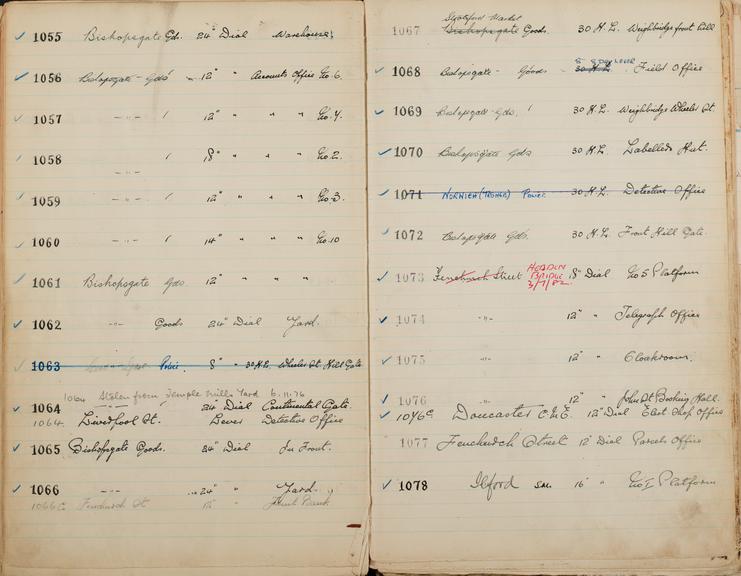 1055 Bishopsgate Gds. 24" Dial Warehouse
1056 Bishopsgate - Gds' - 12" " Accounts Office No. 6.
1057 - " - ' 12" " " " No. 4.
1058 - " - ' 18" " " " No. 2.
1059 - " - ' 12" " " " No. 3.
1060 - " - ' 14" " " " No. 10
1061 Bishopsgate Gds. 12" " " "
1062 - " - Goods 24" Dial Yard.
1063 Police. 8" " 30 H.L. Wheeler St. Hill Gate
1064 Stolen from Temple Mills Yard 6.11.76
1064 24" Dial Continental Gate.
1064. Liverpool St. Lever Detective Office
1065 Bishopsgate Goods. 24" Dial In Front.
1066 - " - 24" " Yard.
1066C Fenchurch St "
Stratford Market
1067 Bishopsgate Goods. 30 H.L. Weighbridge front hill
1068 Bishopsgate - Goods 30 H.L. 8" 8 DAY LEVER Field Office
1069 Bishopsgate Gds. ' 30 H.L. Weighbridge Wheeler St.
1070 Bishopsgate Gds 30 H.L. Labellers Hut.
1071 NORWICH (THORPE) Power 30 H.L. Detective Office
1072 Bishopsgate Gds. 30 H.L. Front Hill Gate.
1073 Fenchurch Street HEADEN BRIDGE 3/7/82. 18" Dial No 5 Platform
1074 - " - 12" " Telegraph Office
1075 " 12" " Cloakroom.
1076 " 12" " John St Booking Hall.
1076C Doncaster C.M.E. 12" Dial Elect Shop Office
1077 Fenchurch Street 12" Dial Parcels Office
1078 Ilford 16" " No 1 Platform